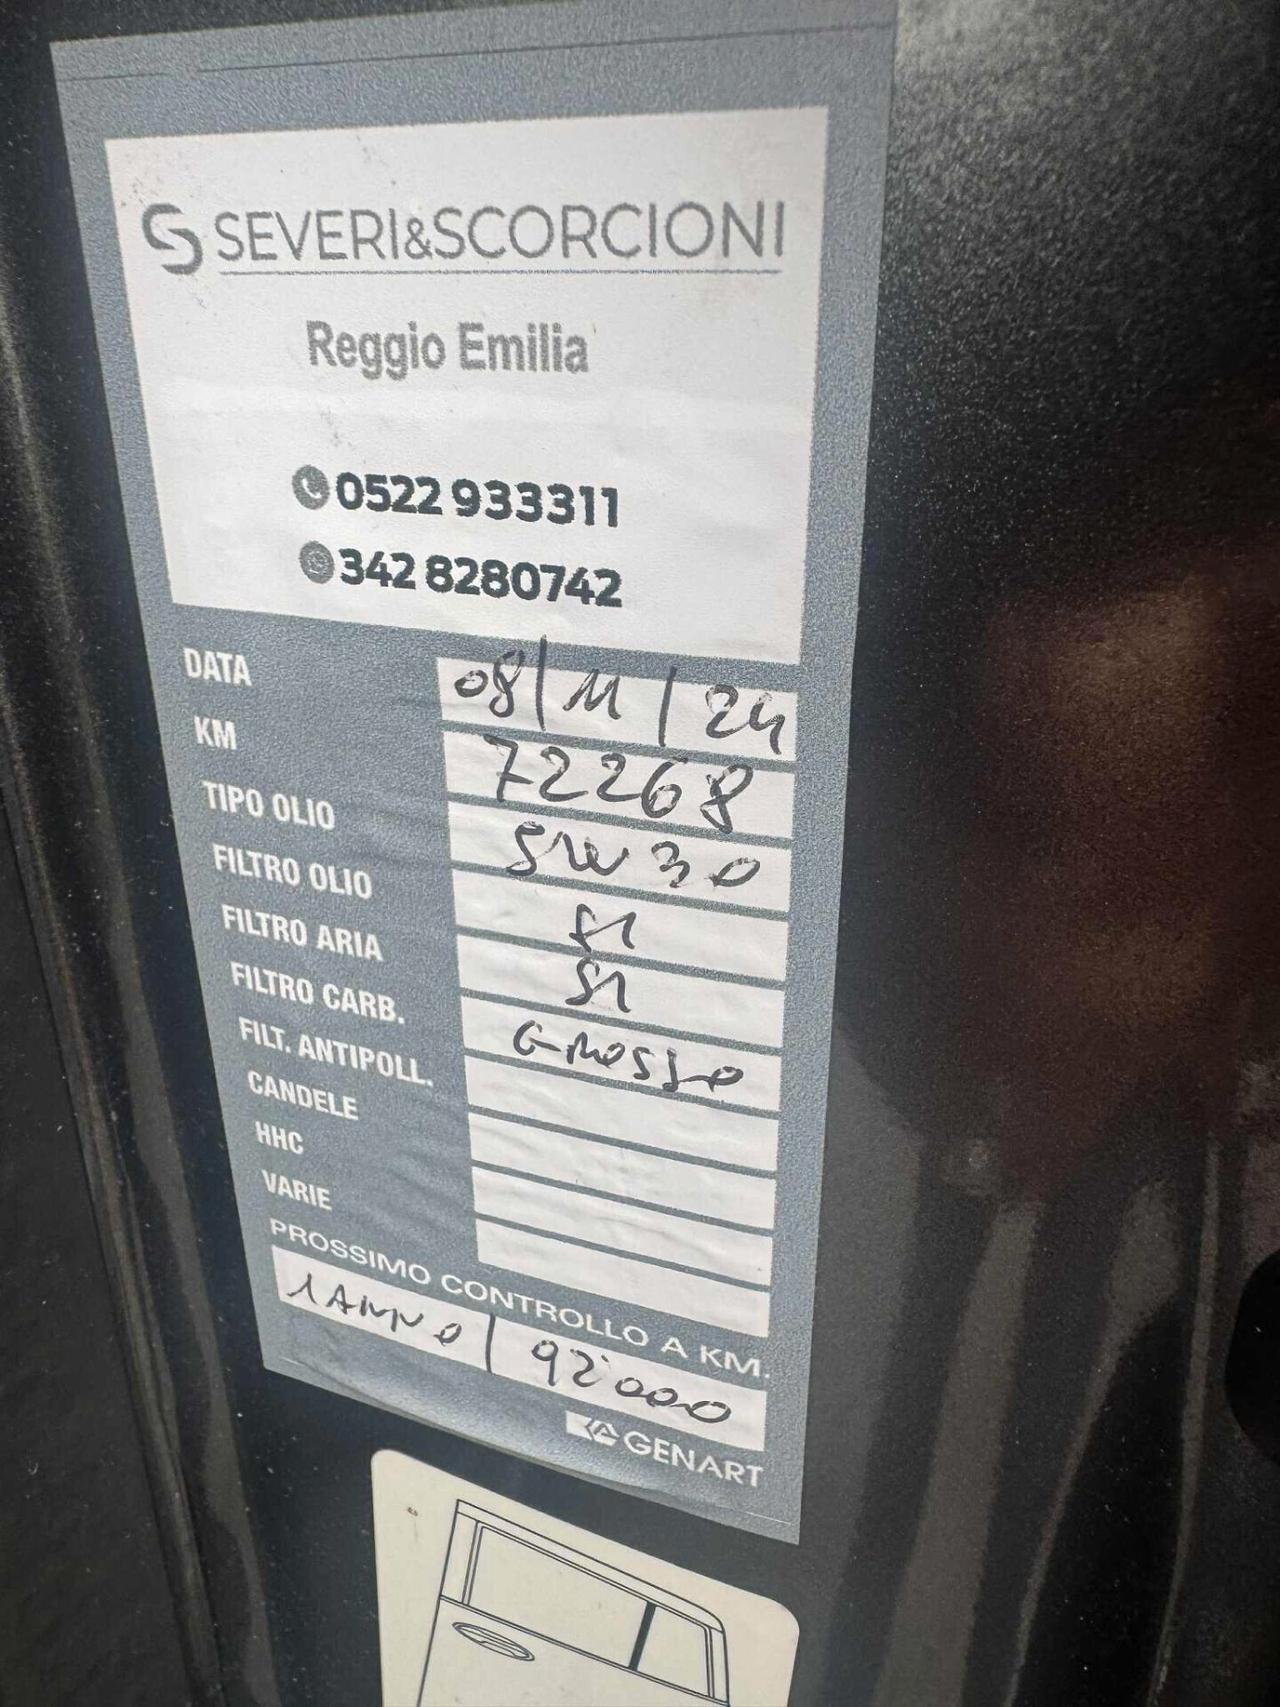 SEVERI&SCORCIONI
Reggio Emilia
0522 933311
342 8280742
DATA 08/11/24
KM 72268
TIPO OLIO 5W30
FILTRO OLIO SI
FILTRO ARIA SI
FILTRO CARB. GROSSO
FILT. ANTIPOLL.
CANDELE
HHC
VARIE
PROSSIMO CONTROLLO A KM.
1 ANNO / 92000
GENART